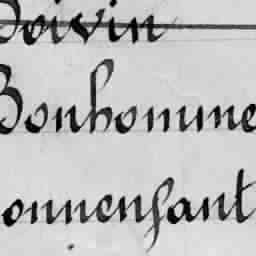 Boivin
Bonhomme
onnenfant